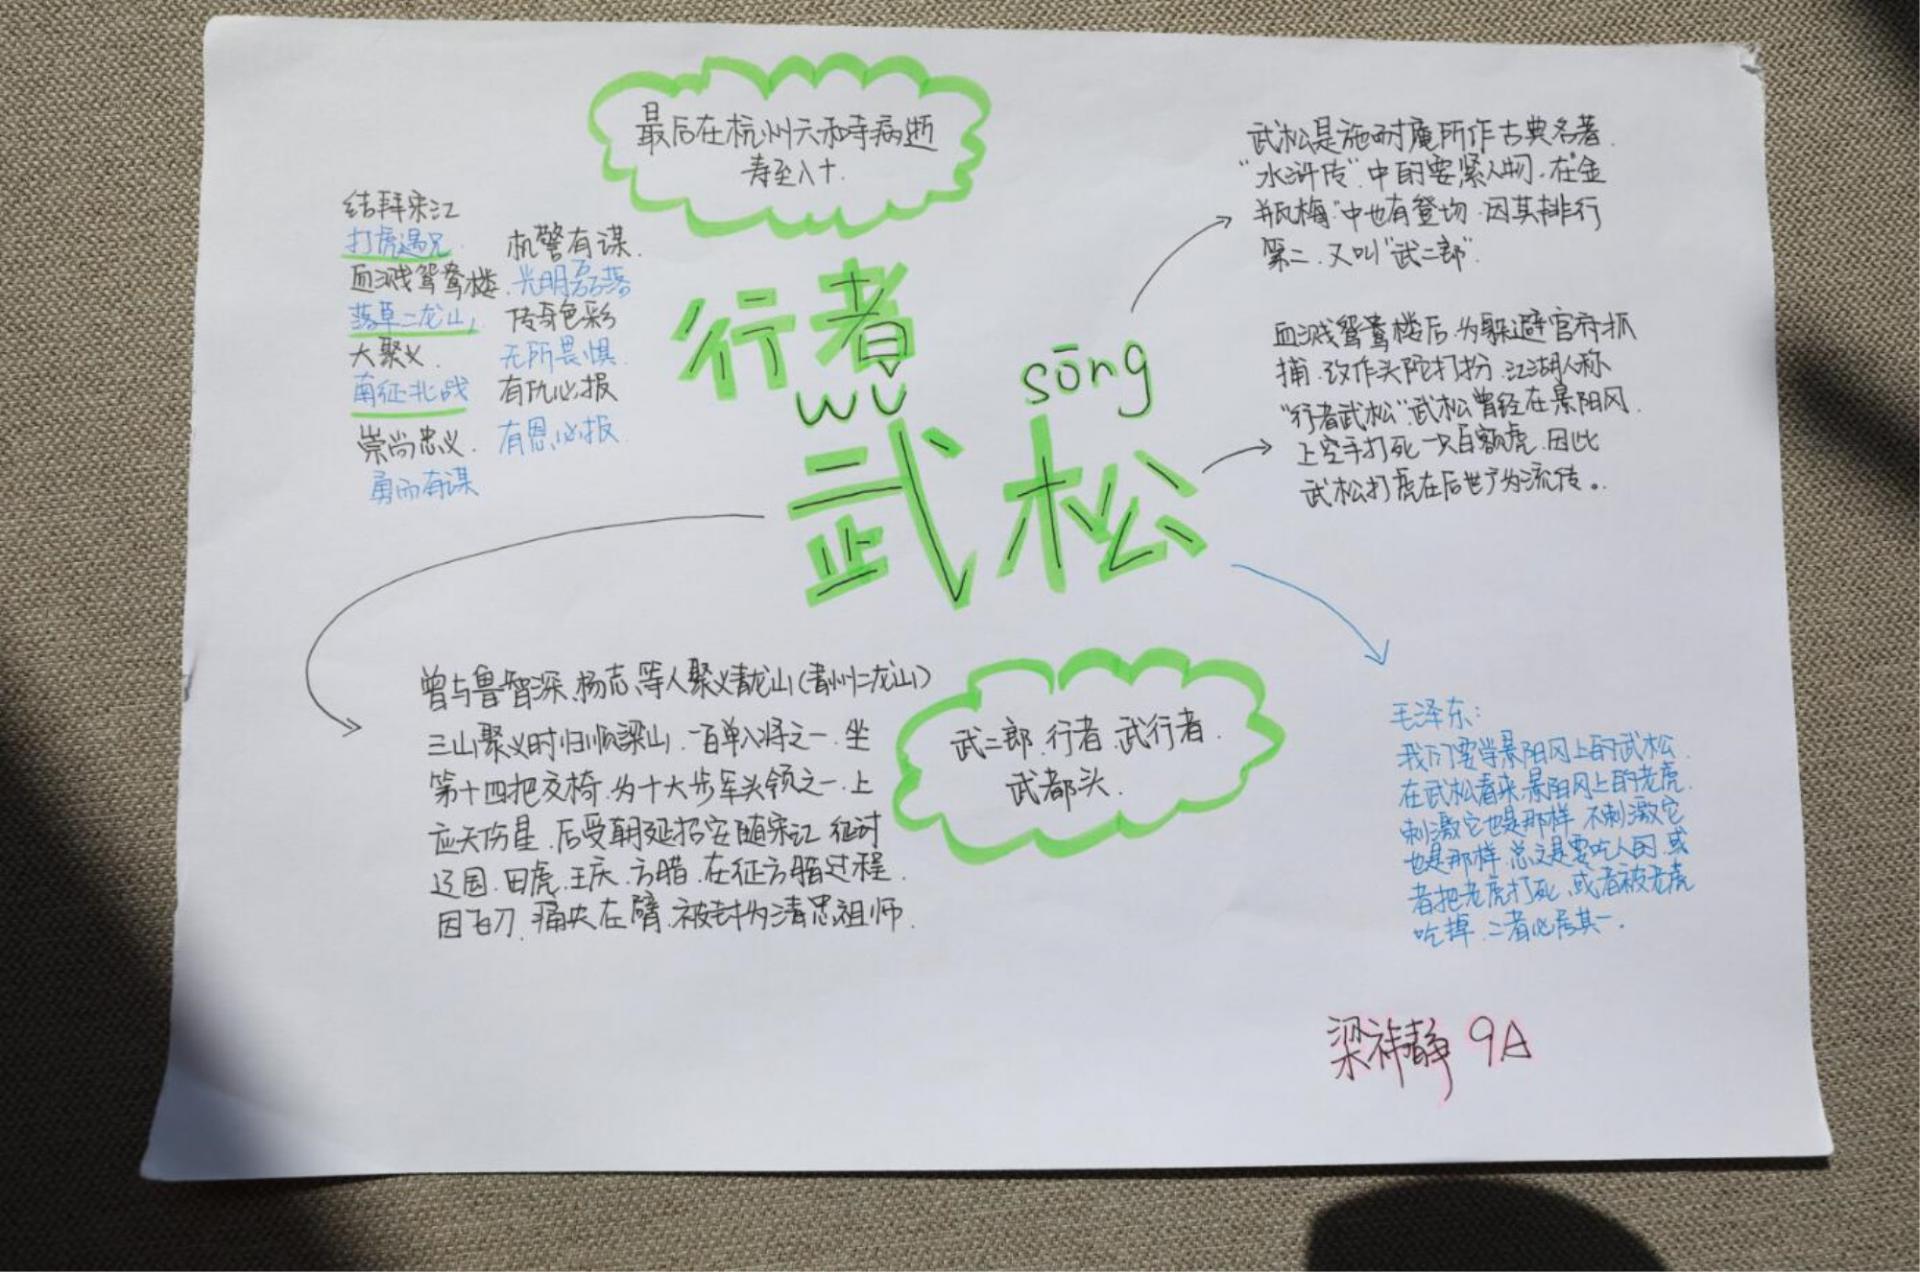 最后在杭州六和寺病逝
寿至八十.
结拜宋江
打虎遇兄.
血溅鸳鸯楼.
落草二龙山,
大聚义.
南征北战
崇尚忠义.
勇而有谋
机警有谋.
光明磊落
传奇色彩
无所畏惧.
有仇必报
有恩必报.
行者
wǔ sōng
武松
武松是施耐庵所作古典名著.
"水浒传".中的要紧人物.在"金
瓶梅"中也有登场.因其排行
第二.又叫"武二郎".
血溅鸳鸯楼后.为躲避官府抓
捕.改作头陀打扮.江湖人称
"行者武松".武松曾经在景阳冈.
上空手打死一只白额虎.因此
武松打虎在后世广为流传。.
曾与鲁智深、杨志、等人聚义青龙山(青州二龙山)
三山聚义时归顺梁山.一百单八将之一.坐
第十四把交椅.为十大步军头领之一.上
应天伤星.后受朝廷招安随宋江 征讨
辽国.田虎.王庆.方腊.在征方腊过程.
因飞刀.痛失左臂.被封为清忠祖师.
武二郎.行者.武行者.
武都头.
毛泽东:
我们要学景阳冈上的武松.
在武松看来.景阳冈上的老虎.
刺激它也是那样 不刺激它
也是那样 总之是要吃人的.或
者把老虎打死.或者被老虎
吃掉.二者必居其一.
梁祎静 9A